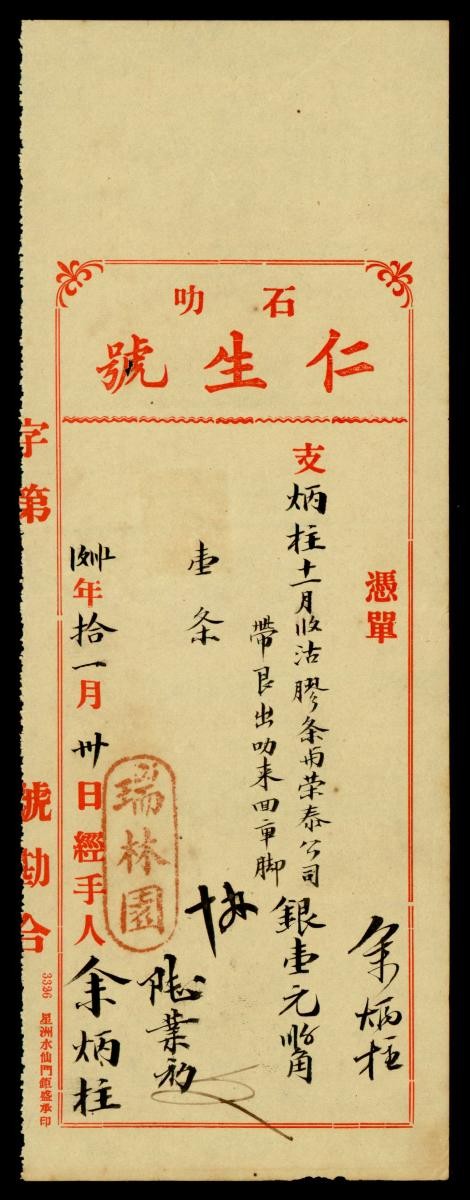 石叻
仁生號
憑單
余炳柱
支炳柱十一月收沽膠条由荣泰公司
帶艮出叻来回車脚
銀壹元角
壹条
瑞林園
年拾一月卅日經手人余炳柱
字第
號勘合
3326 星洲水仙門鉅盛承印